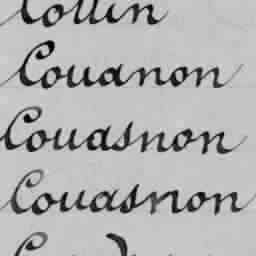 Collin
Couanon
Couasnon
Couasnon